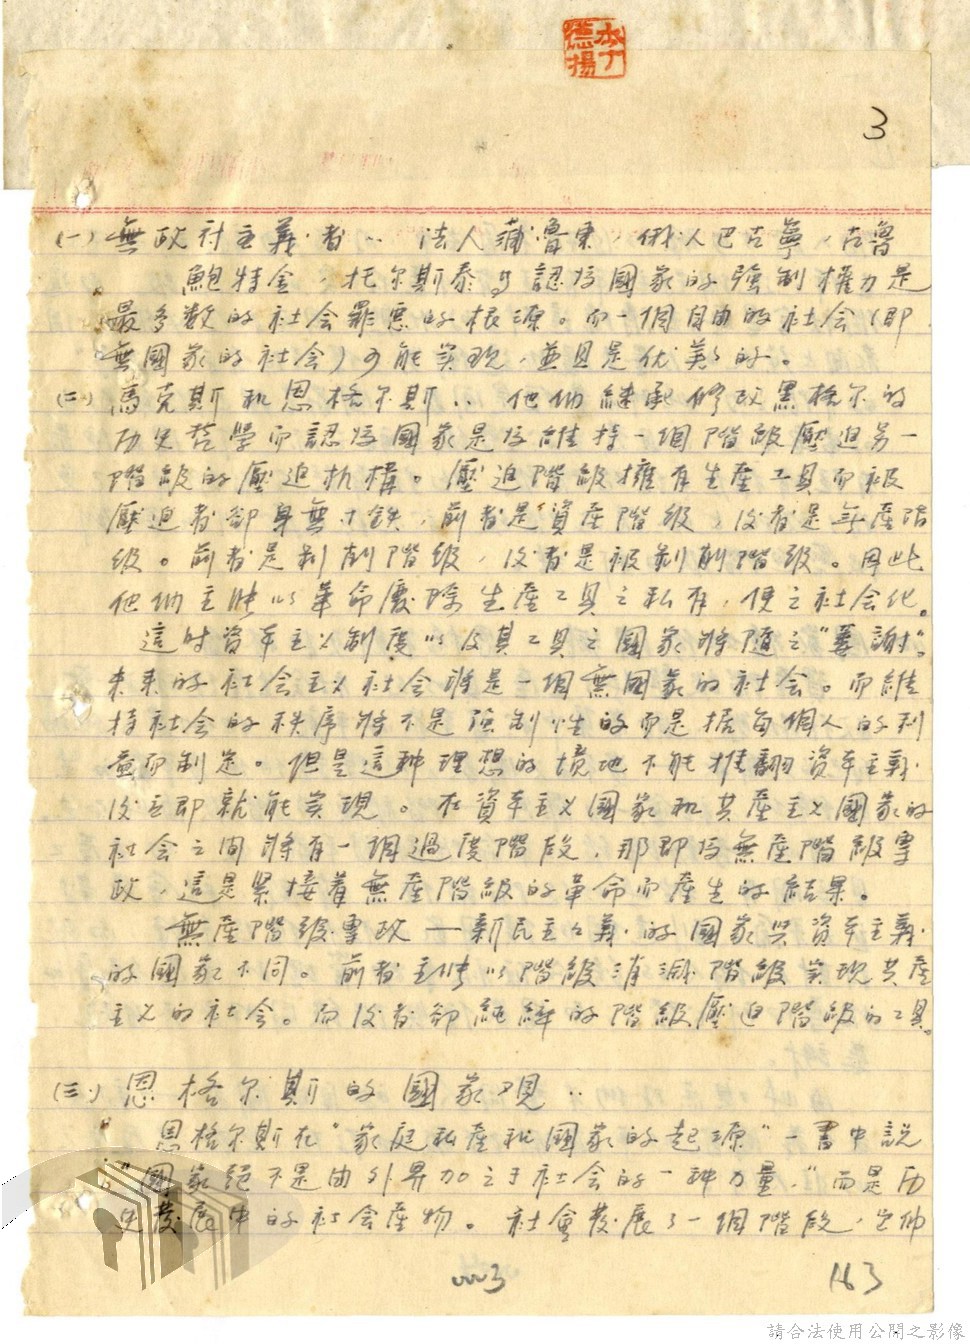 3
(一) 無政府主義者：法人蒲魯東，俄人巴古寧，古魯
鮑特金，托尔斯泰等認為國家的強制權力是
最多數的社会罪惡的根源。而一個自由的社会(即
無國家的社会)可能实现，並且是优美的。
(二) 馬克斯和恩格尔斯：他們継承修改黑格尔的
历史哲學而認為國家是為維持一個階級壓迫另一
階級的壓迫机構。壓迫階級擁有生產工具而被
壓迫者卻身無寸鉄，前者是資產階級，後者是無產階
級。前者是剝削階級，後者是被剝削階級。因此
他們主張以革命廢除生產工具之私有，使之社会化。
這时資本主义制度以及其工具之國家將隨之“萎謝”。
未来的社会主义社会將是一個無國家的社会。而維
持社会的秩序將不是強制性的而是据每個人的利
益而制定。但是這种理想的境地不能推翻資本主義
後立即就能实現。在資本主义國家和共產主义國家的
社会之间將有一個過度階段，那即為無產階級專
政，這是緊接着無產階級的革命而產生的結果。
無產階級專政——新民主主義的國家與資本主義
的國家不同。前者主張以階級消滅階級实现共產
主义的社会。而後者卻純粹的階級壓迫階級的工具。
(三) 恩格尔斯的國家观：
恩格尔斯在“家庭私產和國家的起源”一書中說
“國家絕不是由外界加之于社会的一种力量，”而是历
史發展中的社会產物。社會發展了一個階段，它仰
0003
163
請合法使用公開之影像